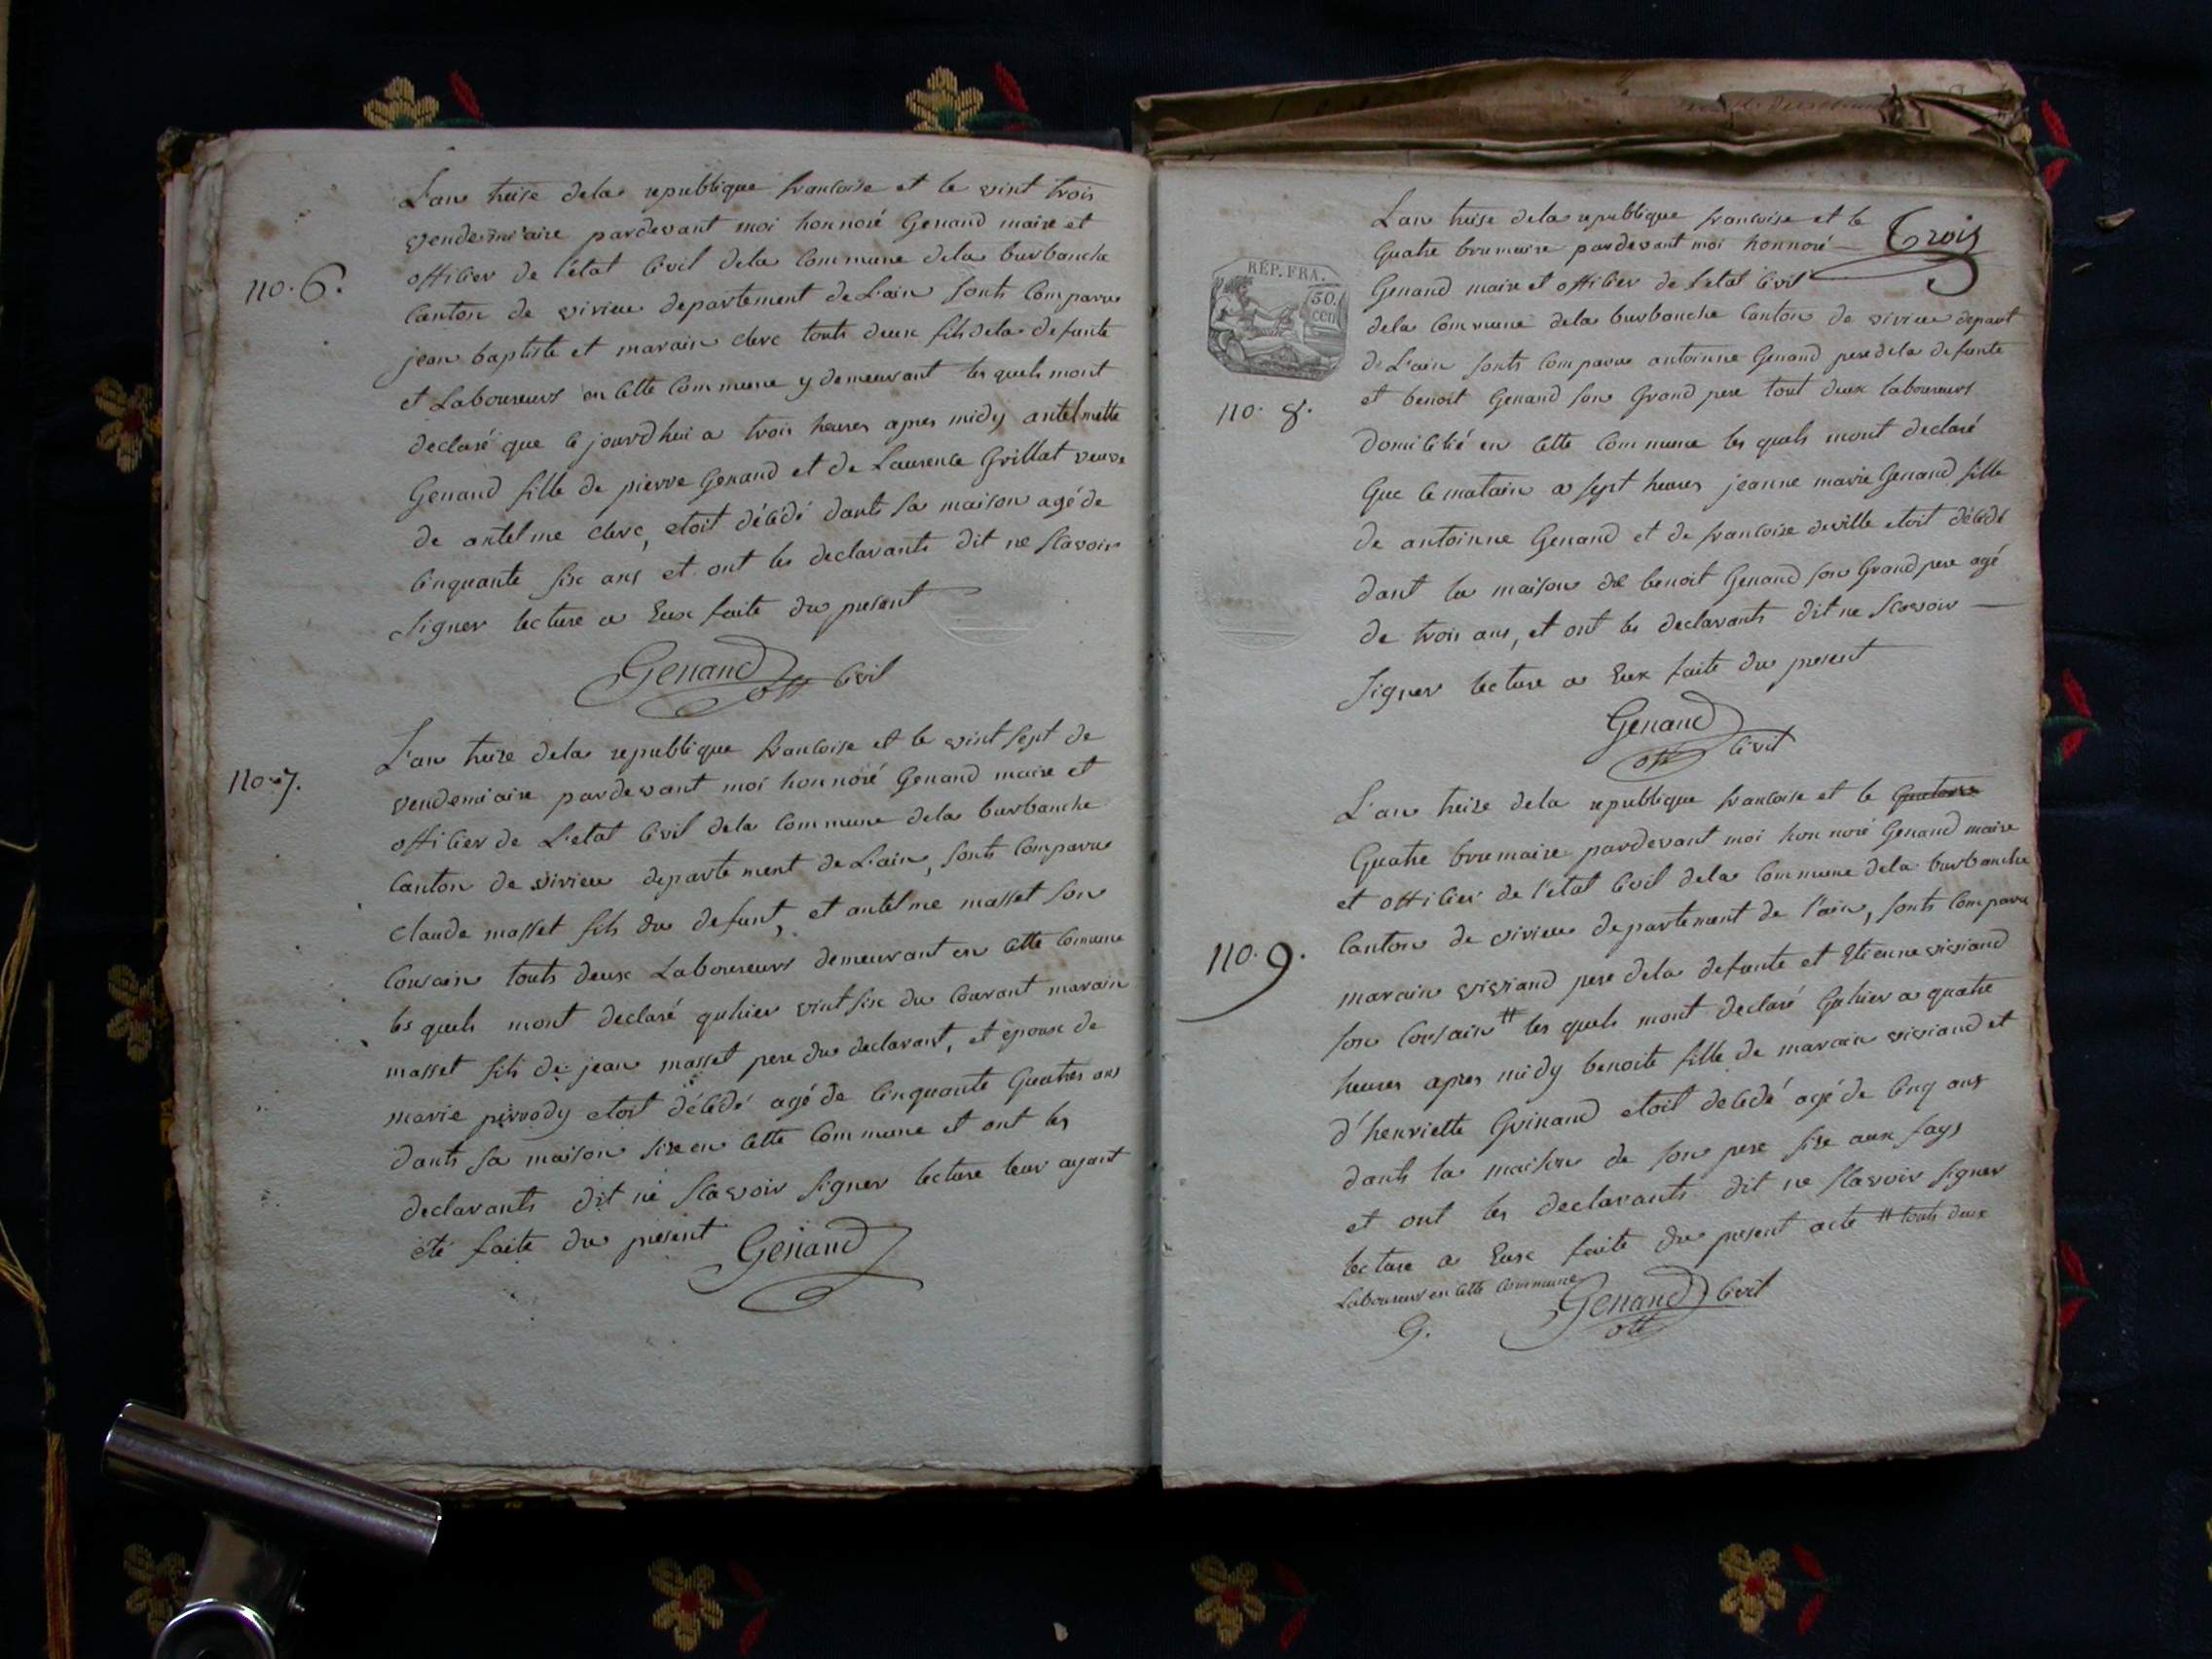 L'an treize dela republique francoise et le vint trois
vendemiaire pardevant moi honnoré Genand maire et
officier de l'état civil dela commune dela burbanche
110. 6.
canton de virieu departement de L'ain sonts comparu
jean baptiste et marain clerc touts deux fils dela defunte
et Laboureurs en cette commune y demeurant les quels mont
declaré que ce jourdhui a trois heures apres midy antelmette
Genand fille de pierre Genand et de Laurence Grillat veuve
de antelme clerc, etoit décédé dants sa maison agé de
cinquante six ans et ont les declarants dit ne scavoir
signer lecture a Eux faite du present
Genand off civil
L'an treize dela republique francoise et le vint sept de
110. 7.
vendemiaire pardevant moi honnoré Genand maire et
officier de L'etat civil dela commune dela burbanche
canton de virieu departement de L'ain, sonts comparu
claude masset fils du defunt, et antelme masset son
cousin touts deux Laboureurs demeurant en cette comune
les quels mont declaré quhier vint six du courant marain
masset fils de jean masset pere du declarant, et epoux de
marie pivrody etoit décédé agé de cinquante quatres ans
dants sa maison size en cette commune et ont les
declarants dit ne scavoir signer lecture leur ayant
eté faite du present Genand
L'an treise dela republique francoise et le
Trois
quatre brumaire pardevant moi honnoré
RÉP. FRA.
50. cen
Genand maire et officier de L'etat civil
dela commune dela burbanche canton de virieu depart
de L'ain sonts comparu antoinne Genand pere dela defunte
110. 8.
et benoit Genand son Grand pere tout deux laboureurs
domicilié en cette commune les quels mont declaré
que ce matain a sept heures jeanne marie Genand fille
de antoinne Genand et de francoise deville etoit décédé
dant la maison de benoit Genand son Grand pere agé
de trois ans, et ont les declarants dit ne scavoir
signer lecture a Eux faite du present
Genand
off civil
L'an treize dela republique francoise et le quatorze
quatre brumaire pardevant moi honnoré Genand maire
et officier de l'etat civil dela commune dela burbanche
110. 9.
canton de virieu departement de l'ain, sonts comparu
marain viviand pere dela defunte et Etienne viviand
son cousain # les quels mont declaré quhier a quatre
heures apres midy benoite fille de marain viviand et
d'henriette Guinand etoit decédé agé de cinq ans
dants la maison de son pere size aux fays
et ont les declarants dit ne scavoir signer
lecture a Eux faite du present acte # touts deux
Laboureurs en cette commune
G.
Genand civil
off